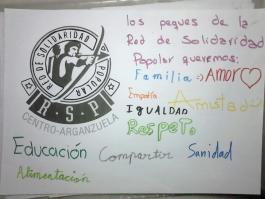 RED DE SOLIDARIDAD
POPULAR
R.S.P
CENTRO-ARGANZUELA
Los peques de la
Red de Solidaridad
Popular queremos:
Familia :) AMOR
Empatía
Amistad
IGUALDAD
RespeTo
Educación Compartir Sanidad
Alimentación